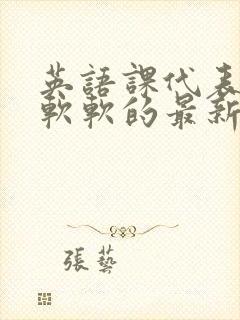 英語課代表
軟軟的最新
張藝